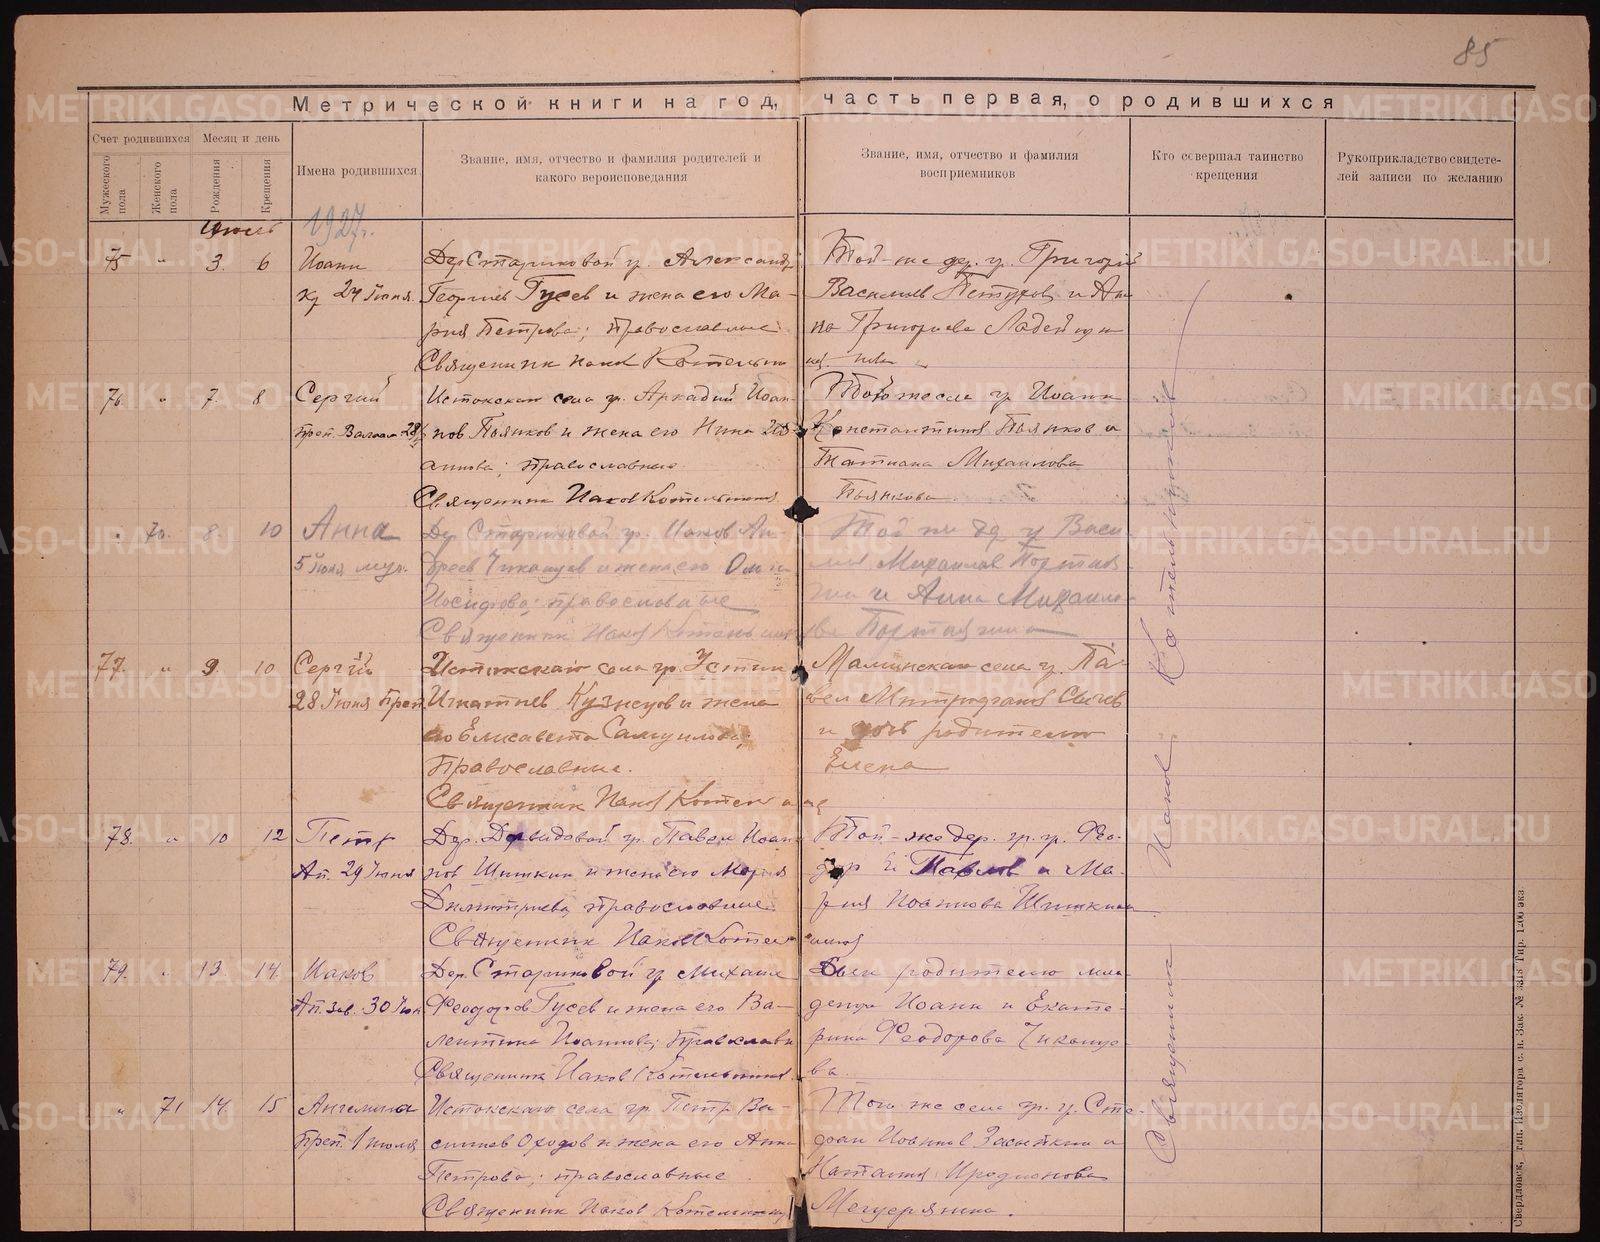 85
Метрической книги на год, часть первая, о родившихся
Счет родившихся
Месяц и день
Мужеского пола
Женского пола
Рождения
Крещения
Имена родившихся
Звание, имя, отчество и фамилия родителей и
какого вероисповедания
Звание, имя, отчество и фамилия
восприемников
Кто совершал таинство
крещения
Рукоприкладство свидете-
лей записи по желанию
Июль 1927 г.
75 " 3. 6 Иоанн
24 Июня.
Дер Стариковой гр. Александр
Георгиев Гусев и жена его Ма-
рия Петрова; православные
Священник Иаков Котельни
Той-же дер. гр. Григорий
Васильев Петухов и Ан
на Григориева
76. " 7. 8 Сергий
преп. Валаам 28/6
Истокскаго села гр. Аркадий Иоан-
нов Пьянков и жена его Нина Ио
аннова; православные
Священник Иаков Котельников
Того же села гр Иоанн
Константинов Пьянков и
Татиана Михаилова
Пьянкова.
" 70. 8. 10 Анна
5 Июля муч.
Дер Стариковой гр. Иаков Ан-
дреев Чиканцев и жена его
Иосифова; православные
Священник Иаков Котельников
Той же др гр Васи-
лий Михаилов Портня
гин и Анна Михаило-
ва Портнягина
77. " 9. 10 Сергий
28 Июня Преп.
Истокскаго села гр. Устин
Игнатиев Кузнецов и жена
его Елисавета Самуилова;
Православные.
Священник Иаков Котельников
села гр. Па-
вел Митрофанов Сычев
и дочь родителю
Елена
78. " 10 12 Петр
Ап. 29 Июня
Дер. Давыдовой гр. Павел Иоан
нов Шишкин и жена его Мария
Димитриева, православные
Священник Иаков Котельников
Той-же дер. гр. гр. Фео-
дор Павлов и Ма-
рия Иоаннова Шишкины
79. " 13. 14. Иаков
Ап. Зав. 30 Июн
Дер. Стариковой гр Михаил
Феодоров Гусев и жена его Ва-
лентина Иоаннова; Православн
Священник Иаков Котельников.
родителю мла-
денца Иоанн и Екате-
рина Феодорова Чиканце-
ва.
" 71 14. 15 Ангелина
Преп. 1 июля
Истокскаго села гр. Петр Ва
силиев Оходов и жена его Анна
Петрова; православные.
Священник Иаков Котельников
Того же села гр. гр. Сте-
фан Иоаннов Засыпкин и
Наталия Иродионова
Мещерякина.
Священник Иаков Котельников
Свердловск, тип. Изолятора с. н. Зак. № 3318 Тир. 1200 экз
METRIKI.GASO-URAL.RU